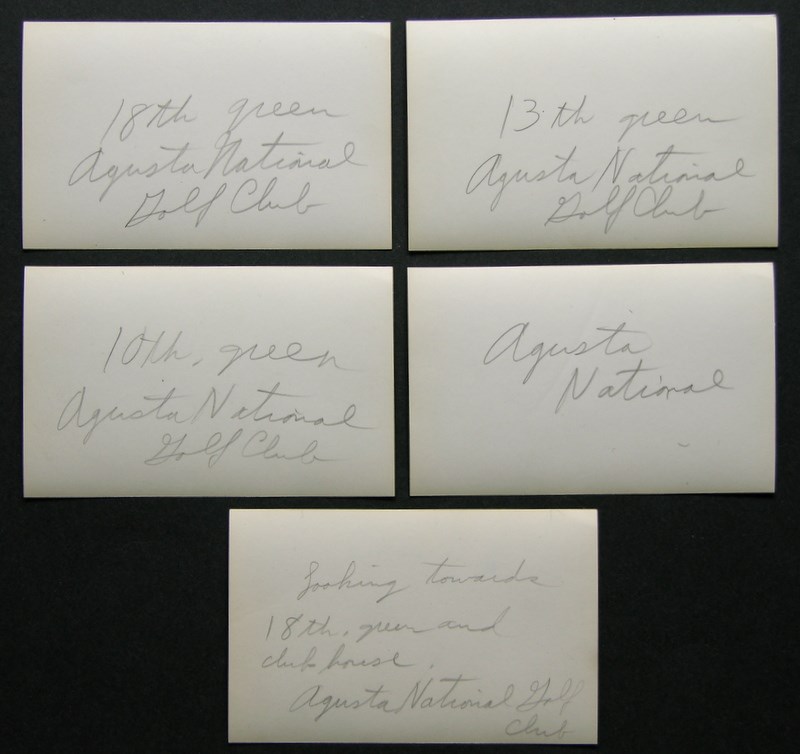 18th green
Agusta National
Golf Club
13th green
Agusta National
Golf Club
10th. green
Agusta National
Golf Club
Agusta
National
Looking towards
18th. green and
club house.
Agusta National Golf
Club